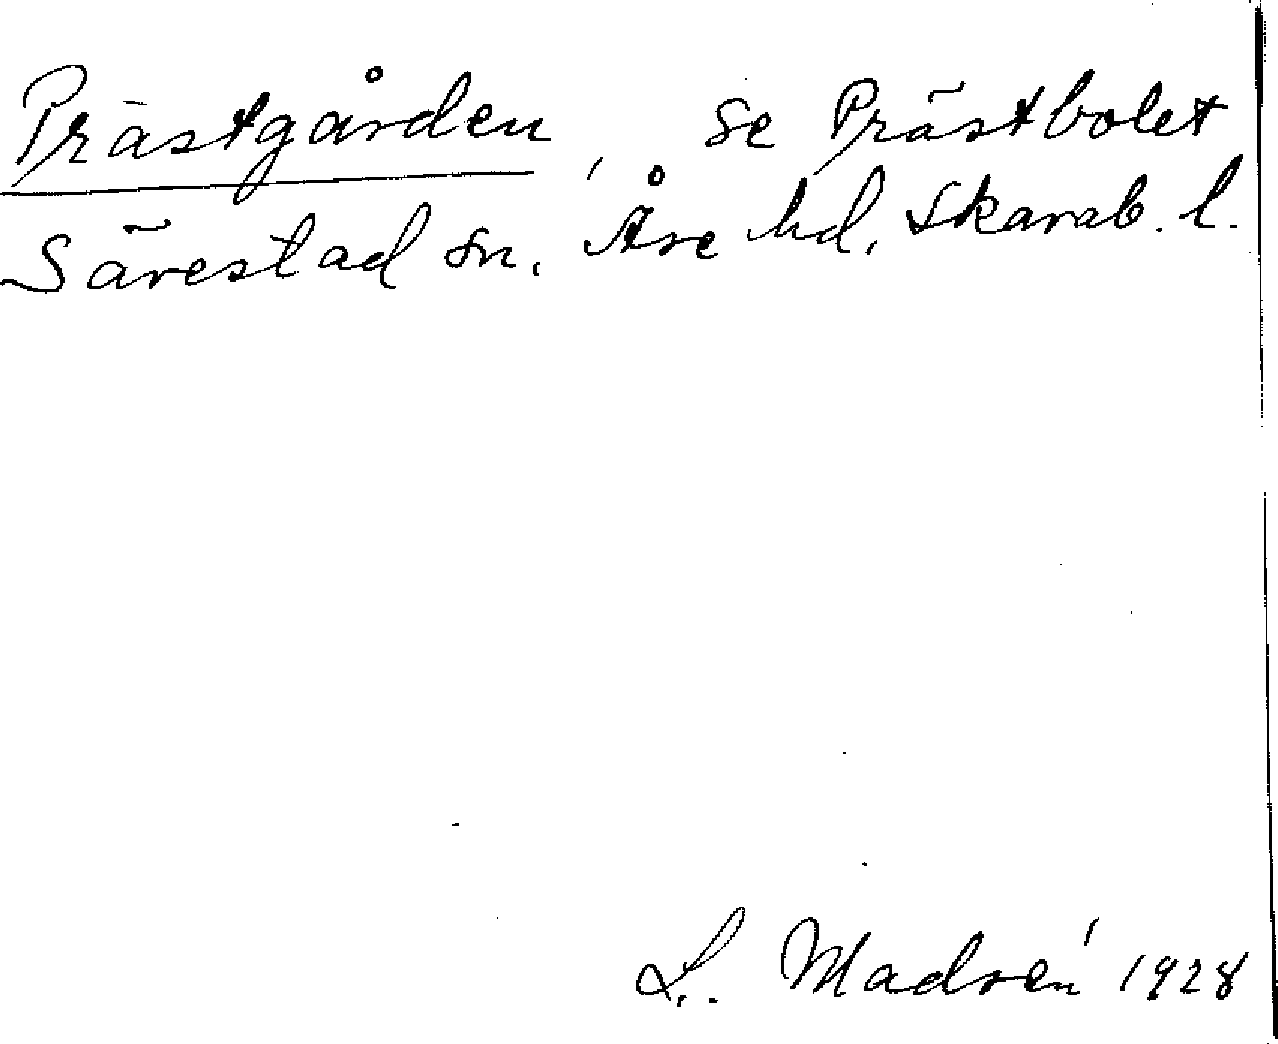 Prästgården, se Prästbolet
Särestad sn. Åse hd, Skarab. l.
L. Madsén 1928